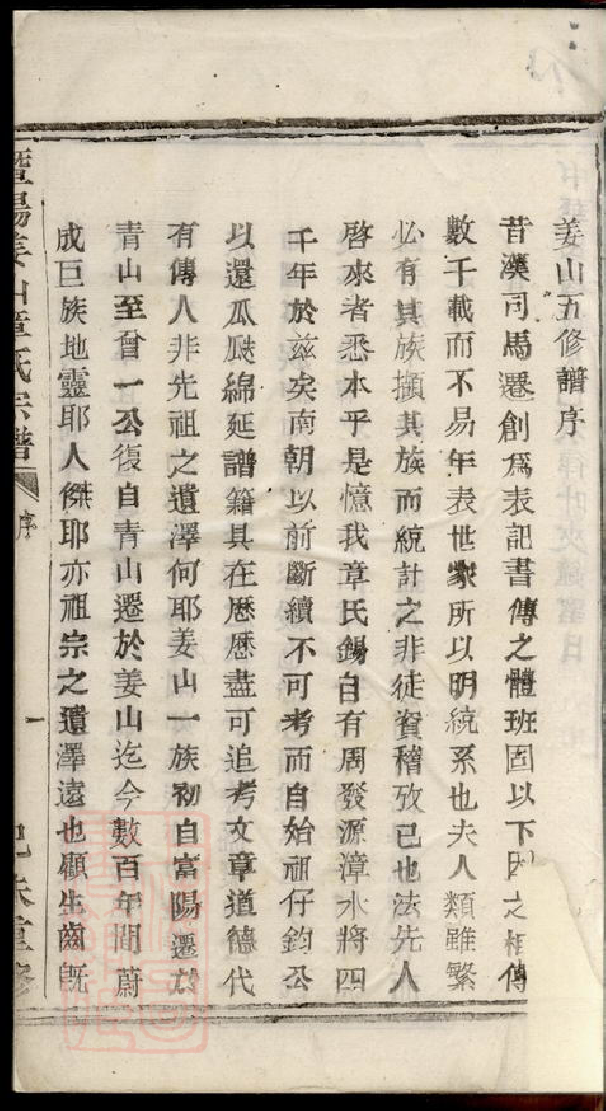 姜山五修譜序
昔漢司馬遷創爲表記書傳之體班固以下因之相傳
數千載而不易年表世家所以明統系也夫人類雖繁
必有其族擷其族而統計之非徒資稽攷已也法先人
啓來者悉本乎是憶我章氏錫自有周發源漳水將四
千年於兹矣南朝以前斷續不可考而自始祖仔鈞公
以還瓜瓞綿延譜籍具在歷歷盡可追考文章道德代
有傳人非先祖之遺澤何耶姜山一族初自富陽遷於
青山至曾一公復自青山遷於姜山迄今數百年間蔚
成巨族地靈耶人傑耶亦祖宗之遺澤遠也顧生齒旣
暨陽姜山章氏宗譜 序 一 重修